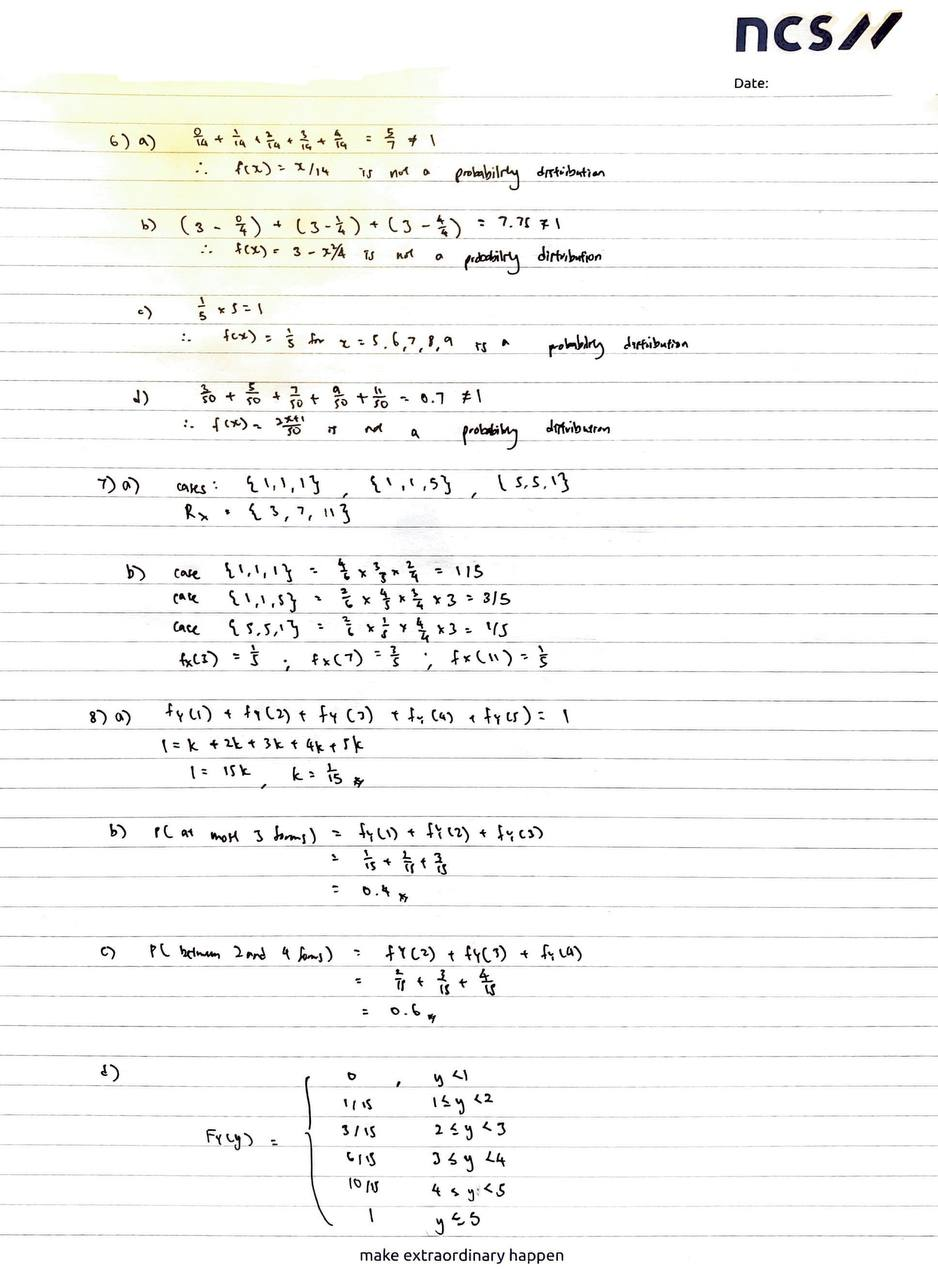 ncs//
Date:
6) a) 0/14 + 1/14 + 2/14 + 3/14 + 4/14 = 5/7 ≠ 1
∴ f(x) = x/14 is not a probability distribution
b) (3 - 0/4) + (3 - 1/4) + (3 - 4/4) = 7.75 ≠ 1
∴ f(x) = 3 - x²/4 is not a probability distribution
c) 1/5 × 5 = 1
∴ f(x) = 1/5 for x = 5,6,7,8,9 is a probability distribution
d) 3/50 + 5/50 + 7/50 + 9/50 + 11/50 = 0.7 ≠ 1
∴ f(x) = 2x+1/50 is not a probability distribution
7) a) cases: {1,1,1}, {1,1,5}, {5,5,1}
Rx = {3, 7, 11}
b) case {1,1,1} = 4/6 × 3/5 × 2/4 = 1/5
case {1,1,5} = 2/6 × 4/5 × 3/4 × 3 = 3/5
case {5,5,1} = 2/6 × 1/5 × 4/4 × 3 = 1/5
fx(3) = 1/5 ; fx(7) = 3/5 ; fx(11) = 1/5
8) a) fY(1) + fY(2) + fY(3) + fY(4) + fY(5) = 1
1 = k + 2k + 3k + 4k + 5k
1 = 15k, k = 1/15
b) P( at most 3 forms) = fY(1) + fY(2) + fY(3)
= 1/15 + 2/15 + 3/15
= 0.4
c) P( between 2 and 4 forms) = fY(2) + fY(3) + fY(4)
= 2/15 + 3/15 + 4/15
= 0.6
d)
0 , y < 1
1/15 1 ≤ y < 2
3/15 2 ≤ y < 3
FY(y) =
6/15 3 ≤ y < 4
10/15 4 ≤ y < 5
1 y ≤ 5
make extraordinary happen